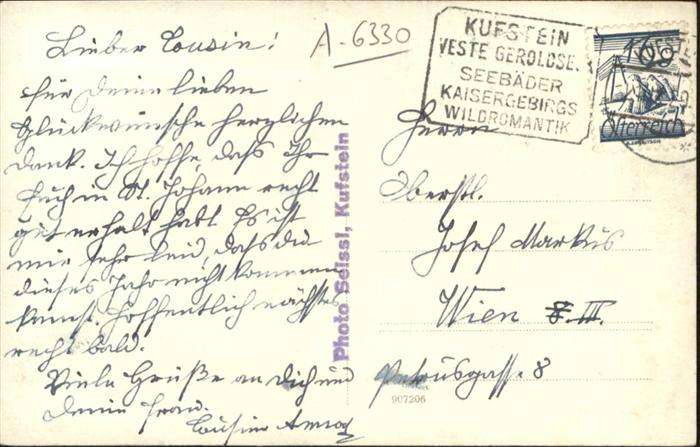 Lieber Cousin!
Für Deine lieben
Glückwünsche herzlichen
Dank. Ich hoffe, daß Ihr
Euch in St. Johann recht
gut erholt habt. Es ist
mir sehr leid, daß du
dieses Jahr nicht kommen
kannst. Hoffentlich nächstes
recht bald.
Viele Grüße an Dich und
Deine Frau.
Cousine Anna
A-6330
KUFSTEIN
VESTE GEROLDSE.
SEEBÄDER
KAISERGEBIRGS
WILDROMANTIK
Österreich
Photo Seissl, Kufstein
Herrn
Oberstl.
Josef Markus
Wien III.
Petrusgasse 8
907206